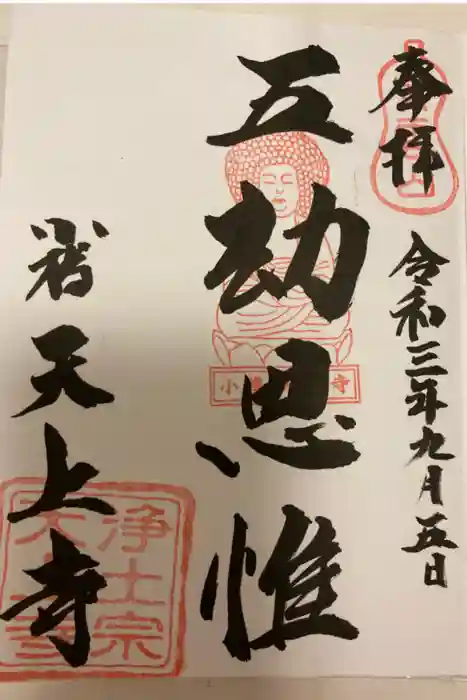 奉拝
令和三年九月五日
五劫思惟
天上寺
浄土宗